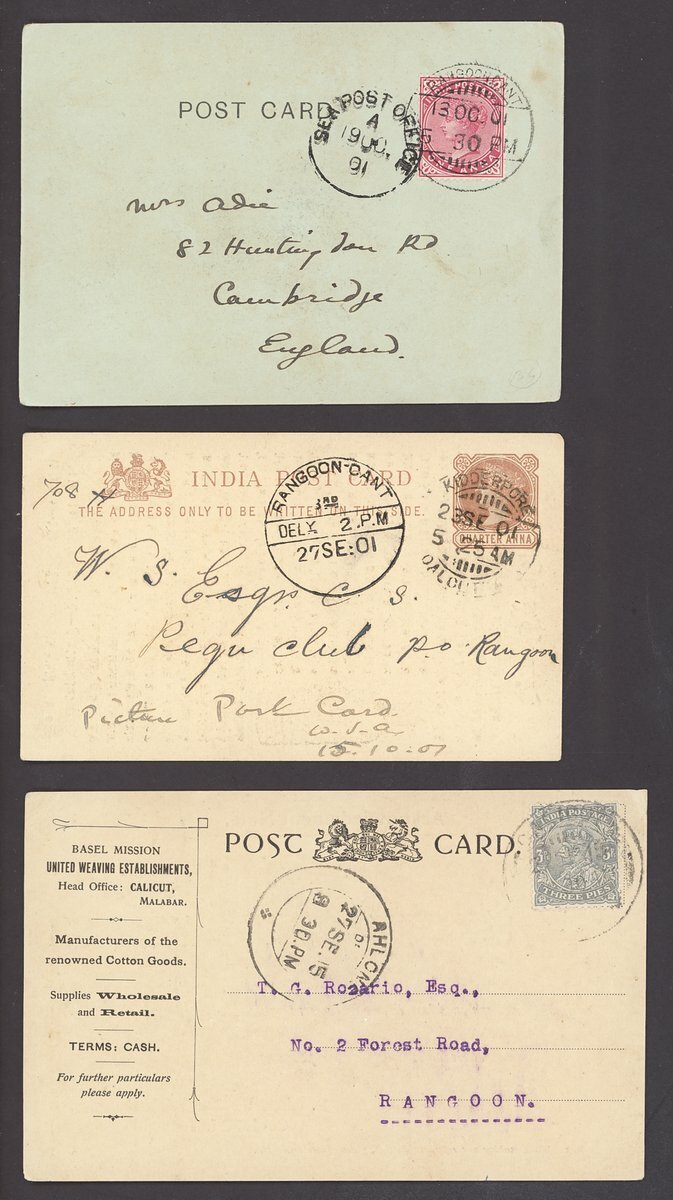 POST CARD
SEA POST OFFICE
A
19 OC.
01
RANGOON CANT
13 OC. 01
5 30 PM
ONE ANNA
Mrs Adie
82 Huntingdon Rd
Cambridge
England.
708
INDIA POST CARD
THE ADDRESS ONLY TO BE WRITTEN ON THIS SIDE.
RANGOON-CANT
3RD
DELY. 2.P.M
27SE:01
KIDDERPORE
23SE 01
5 25 AM
QUARTER ANNA
W. S.
Pegu club p.o Rangoon
Picture Post Card
15.10.01
BASEL MISSION
UNITED WEAVING ESTABLISHMENTS,
Head Office: CALICUT,
MALABAR.
Manufacturers of the
renowned Cotton Goods.
Supplies Wholesale
and Retail.
TERMS: CASH.
For further particulars
please apply.
POST CARD.
INDIA POSTAGE
3P 3P
THREE PIES
AHLON
27 SE. 15
8 30. PM
T. G. Rozario, Esq.,
No. 2 Forest Road,
RANGOON.